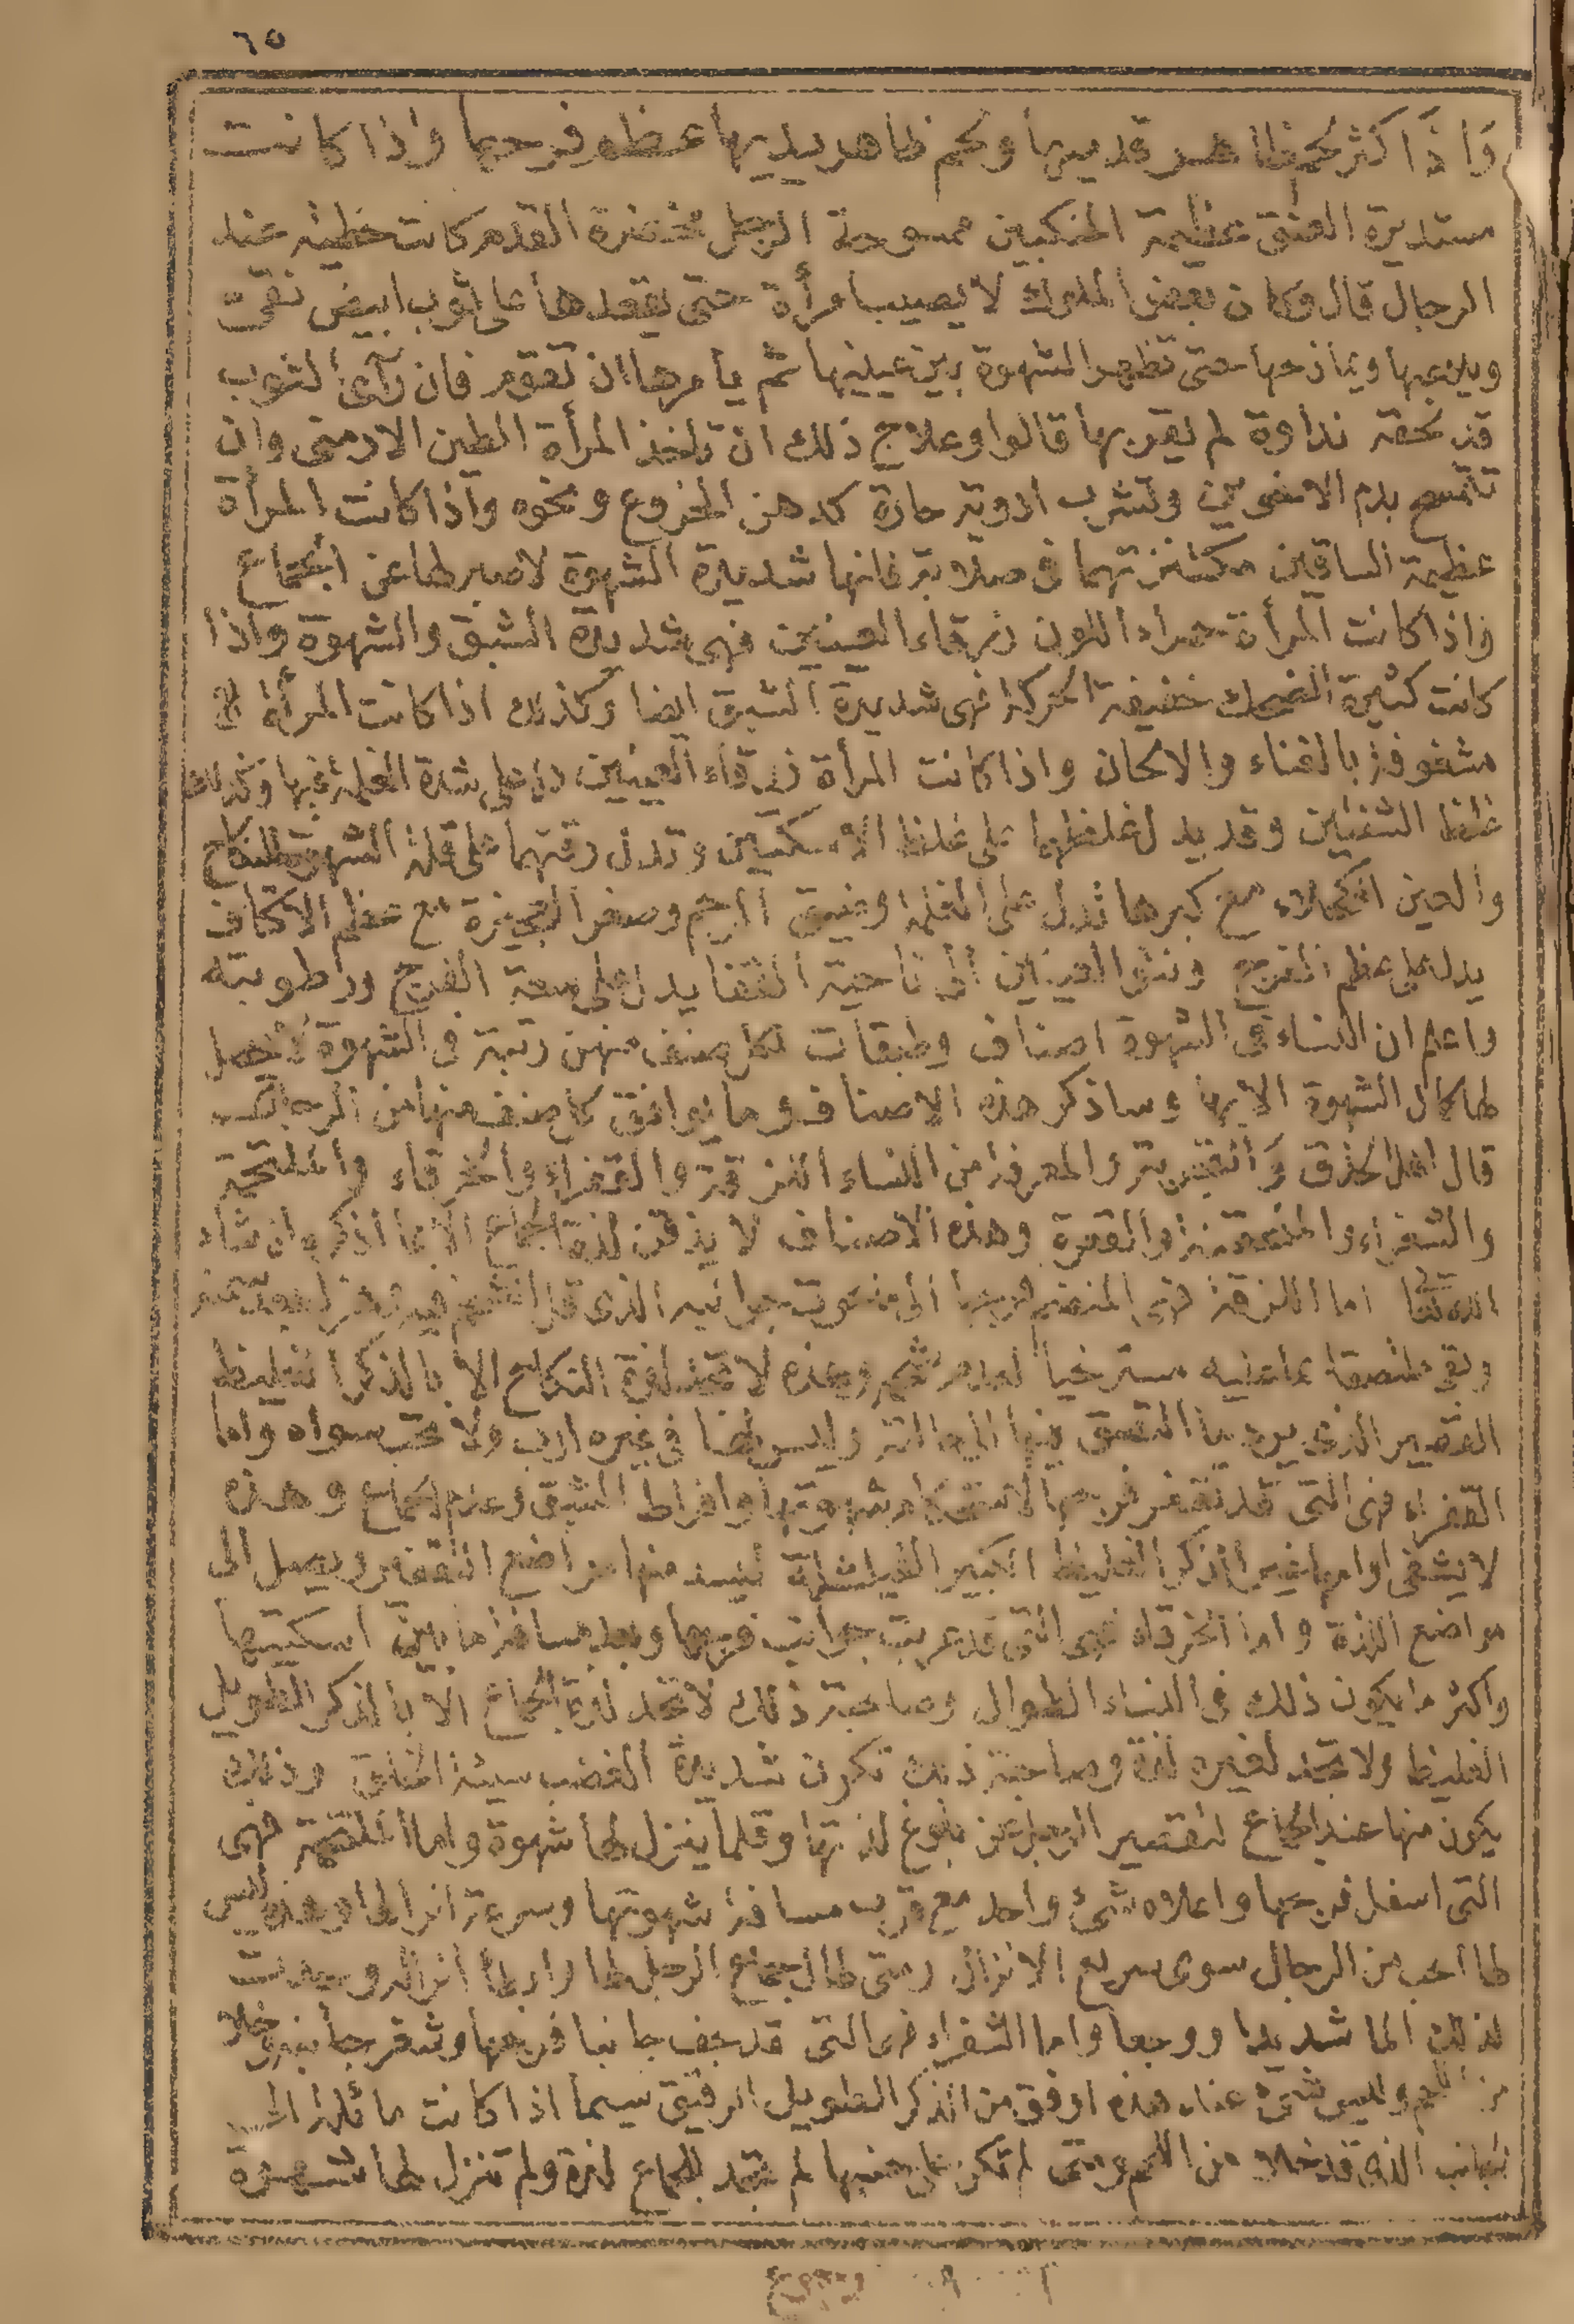 ٦٥
واذا كثر لحم ظاهر قدميها ولحم ظاهر يديها عظم فرجها واذا كانت
مستديرة العنق عظيمة المنكبين ممسوحة الرجل مخضرة القدم كانت حظية عند
الرجال قال وكان بعض الملوك لا يصيب امرأة حتى يقعدها على ثوب ابيض نقى
ويلاعبها ويمازحها حتى تظهر الشهوة بين عينيها ثم يامرها ان تقوم فان رآى الثوب
قد لحقه نداوة لم يقربها قالوا وعلاج ذلك ان تاخذ المرأة الطين الارمنى وان
بدم الاخوين وتشرب ادوية حارة كدهن الخروع ونحوه واذا كانت المرأة
عظيمة الساقين مكتنزتهما فى صلابة فانها شديدة الشهوة لا صبر لها عن الجماع
واذا كانت المرأة حمراء اللون زرقاء العينين فهى شديدة الشبق والشهوة واذا
كانت كثيرة الضحك خفيفة الحركة فهى شديدة الشبق ايضا وكذلك اذا كانت المرأة
مشغوفة بالغناء والالحان واذا كانت المرأة زرقاء العينين دل على شدة الغلمة فيها وكذلك
غلظ الشفتين وقد يدل غلظهما على غلظ الاسكتين وتدل رقتهما على قلة الشهوة للنكاح
والعين الكحلاء مع كبرها تدل على الغلمة وضيق الرحم وصغر العجيزة مع عظم الاكتاف
يدل على عظم الفرج ونتو العينين الى ناحية القفا يدل على سعة الفرج ورطوبته
واعلم ان النساء فى الشهوة اصناف وطبقات لكل صنف منهن رتبة فى الشهوة لا يحصل
لها كمال الشهوة الا بها وساذكر هذه الاصناف وما يوافق كل صنف منها من الرجال
قال اهل الحذق والتجربة والمعرفة من النساء اللزقة والقعراء والخرقاء والملتحمة
والشفراء والقعرة وهذه الاصناف لا يذقن لذة الجماع الا بما اذكره ان شاء
الله تعالى اما اللزقة فهى المنضم فرجها الى جوانبه الذى قد انضم
وبقى ملتصقا مسترخيا لعدم شحم وهذه لا تجد لذة النكاح الا بالذكر الغليظ
القصير الذى يرد ما التصق وليس لها فى غيره ارب ولا تحب سواه واما
القعراء فهى التى قد تقعر فرجها شهوتها وافراط الشبق وعدم الجماع وهذه
لا يشفى اوامها غير الذكر الغليظ الكبير الفيشلة ليسد منها مواضع التقعر ويصل الى
مواضع اللذة واما الخرقاء فهى التى قد جوانب فرجها وبعد مسافة ما بين اسكتيها
واكثر ما يكون ذلك فى النساء الطوال وصاحبة ذلك لا تجد لذة الجماع الا بالذكر الطويل
الغليظ ولا تجد لغيره لذة وصاحبة ذلك تكون شديدة الغضب سيئة الخلق وذلك
يكون منها عند الجماع لتقصير الرجل عن بلوغ لذتها وقلما ينزل لها شهوة واما الملتحمة فهى
التى اسفل فرجها واعلاه شىء واحد مع قرب مسافة شهوتها وسرعة انزالها وهذه ليس
لها احب من الرجال سوى سريع الانزال ومتى طال جماع الرجل لها وابطأ انزاله وجدت
لذلك الما شديدا ووجعا واما الشفراء فهى التى قد جف جانبا فرجها وشفر جانبه وخلا
من اللحم وليس شىء عند هذه اوفق من الذكر الطويل الرقيق سيما اذا كانت مائلة الى
الجانب الذى قد خلا من اللحم ومتى لم تكن على جنبها لم تجد للجماع لذة ولم تنزل لها شهوة